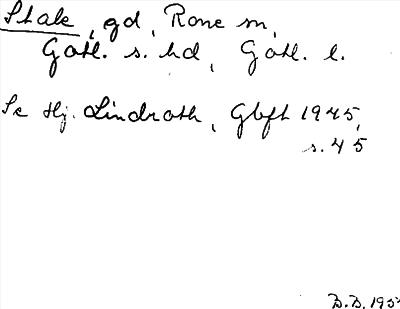 Stale, gd, Rone sn,
Gotl. s. hd, Gotl. l.
Se Hj. Lindroth, Gbft 1945,
s. 45
B.B. 195